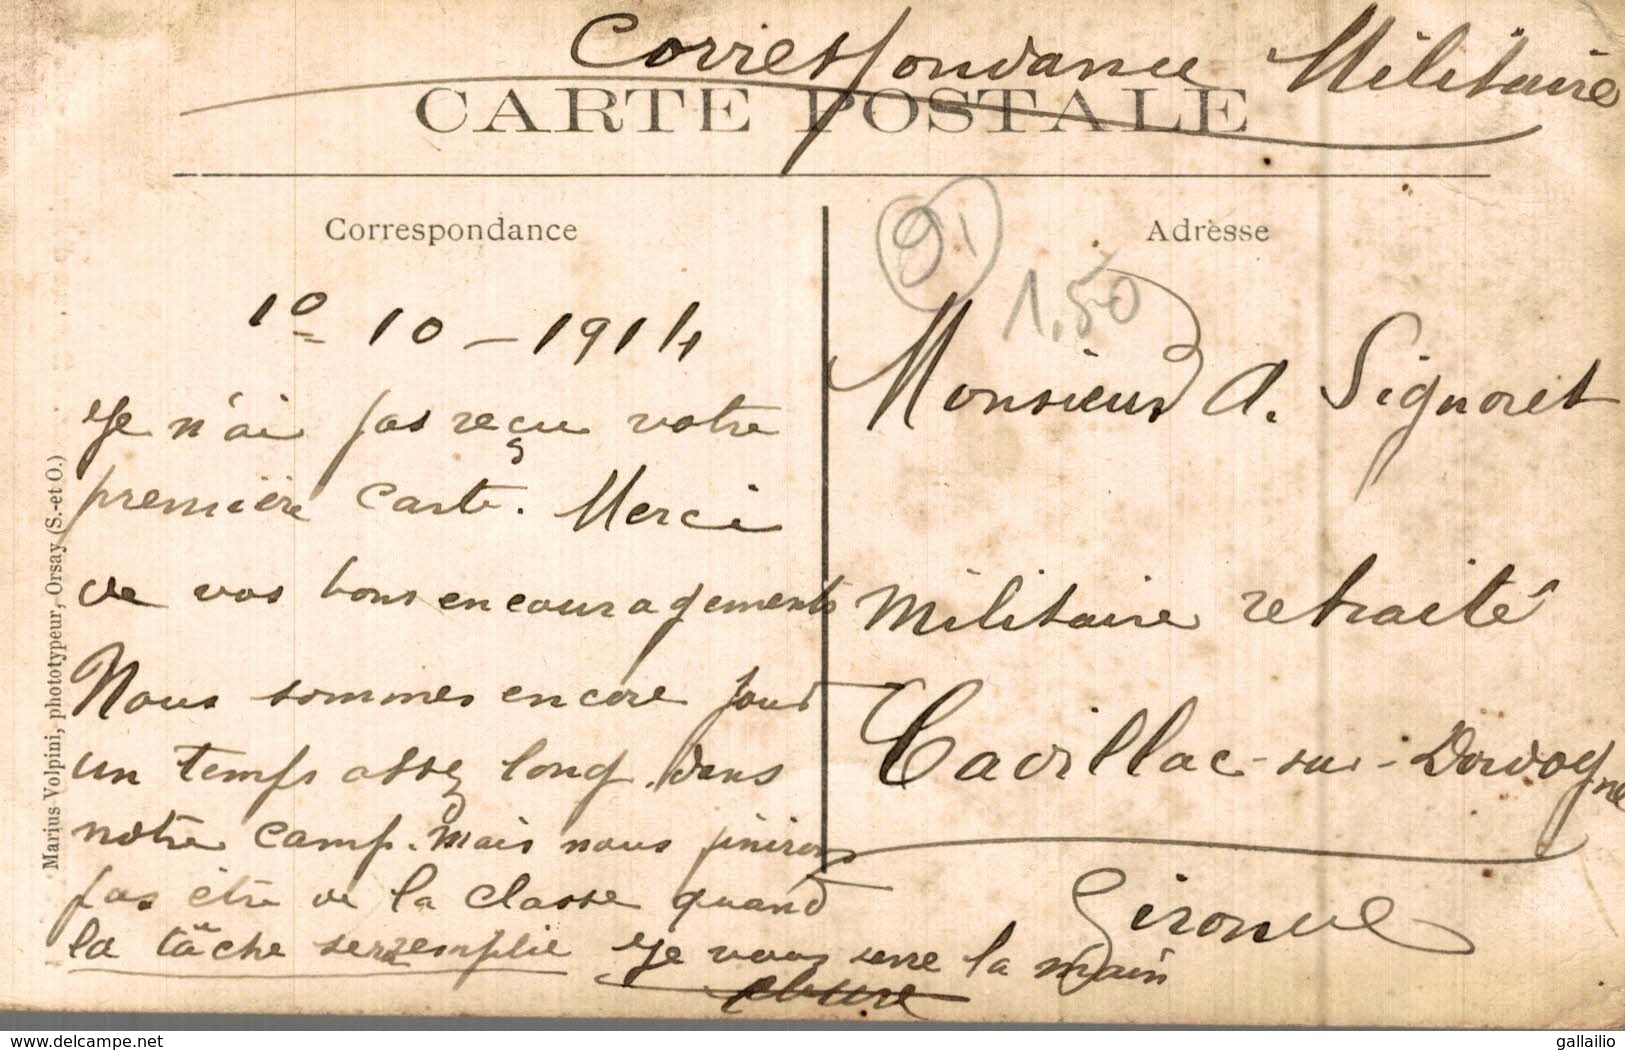 Correspondance Militaire
CARTE POSTALE
Correspondance
1º 10 - 1914
Je n'ai pas reçu votre
première carte. Merci
de vos bons encouragements
Nous sommes encore pour
un temps assez long dans
notre camp. Mais nous finirons
par être de la classe quand
la tâche sera remplie Je vous serre la main
Adresse
91
1,50
Monsieur A. Signoret
Militaire retraité
Cavillac-sur-Dordogne
Gironde
Marius Volpini, phototypeur, Orsay (S.-et O.)
www.delcampe.net
gallailio